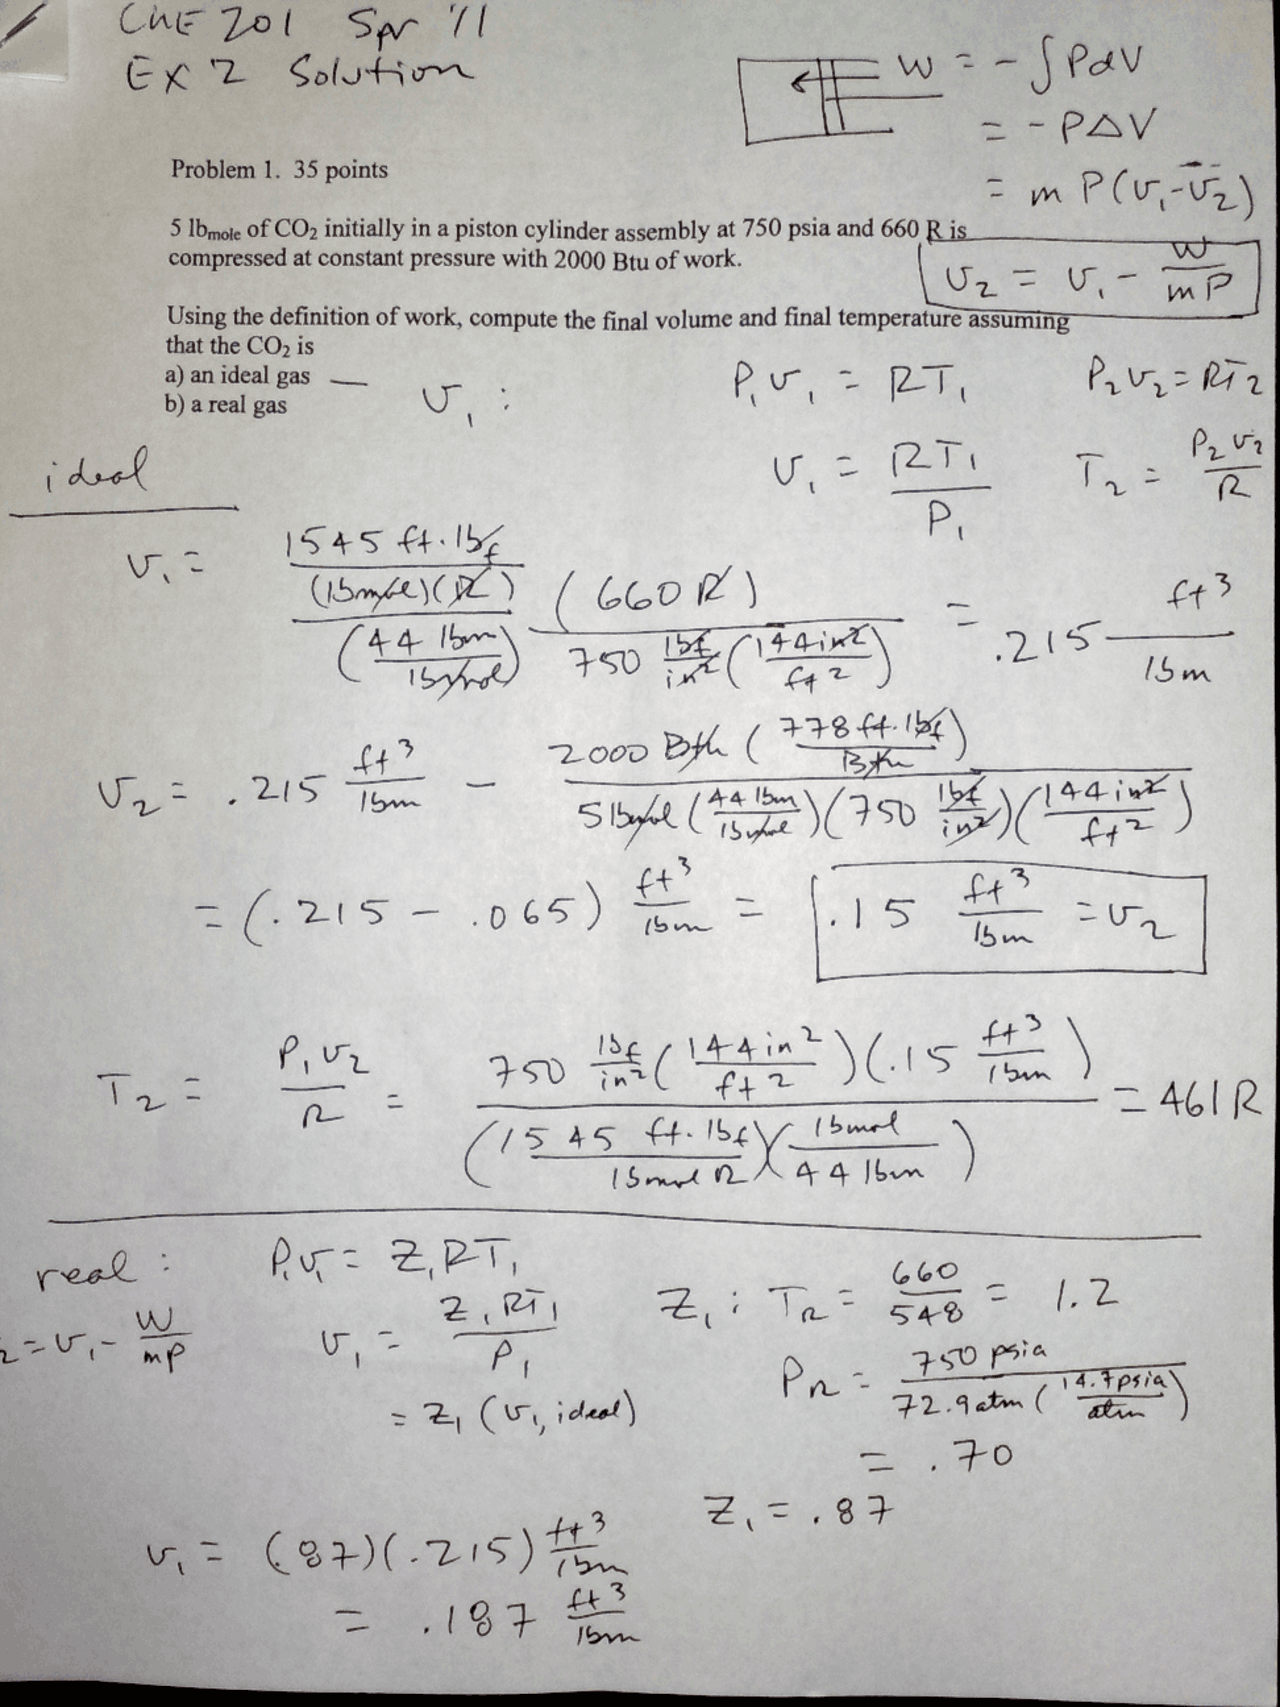 ChE 201 Spr '11
Ex 2 Solution
W = - ∫ P dV
= - P Δ V
= m P (v₁ - v₂)
v₂ = v₁ - W / mP
Problem 1. 35 points
5 lbmole of CO₂ initially in a piston cylinder assembly at 750 psia and 660 R is
compressed at constant pressure with 2000 Btu of work.
Using the definition of work, compute the final volume and final temperature assuming
that the CO₂ is
a) an ideal gas —
b) a real gas
v₁ :
P₁ v₁ = RT₁ P₂ v₂ = RT₂
v₁ = RT₁ / P₁ T₂ = P₂ v₂ / R
ideal
v₁ = (1545 ft·lbf / (lbmole)(R)) / (44 lbm / lbmol) (660 R) / 750 lbf/in² (144 in² / ft²) = .215 ft³ / lbm
v₂ = .215 ft³ / lbm - 2000 Btu (778 ft·lbf / Btu) / 5 lbmol (44 lbm / lbmol) (750 lbf / in²) (144 in² / ft²)
= (.215 - .065) ft³ / lbm = .15 ft³ / lbm = v₂
T₂ = P₁ v₂ / R = 750 lbf / in² (144 in² / ft²) (.15 ft³ / lbm) / (1545 ft·lbf / lbmol R) (lbmol / 44 lbm) = 461 R
real : P₁v₁ = Z₁RT₁
Z₁ : TR = 660 / 548 = 1.2
2 = v₁ - W / mP v₁ = Z₁RT₁ / P₁
PR = 750 psia / 72.9 atm (14.7 psia / atm)
= Z₁ (v₁, ideal)
= .70
Z₁ = .87
v₁ = (.87)(.215) ft³ / lbm
= .187 ft³ / lbm